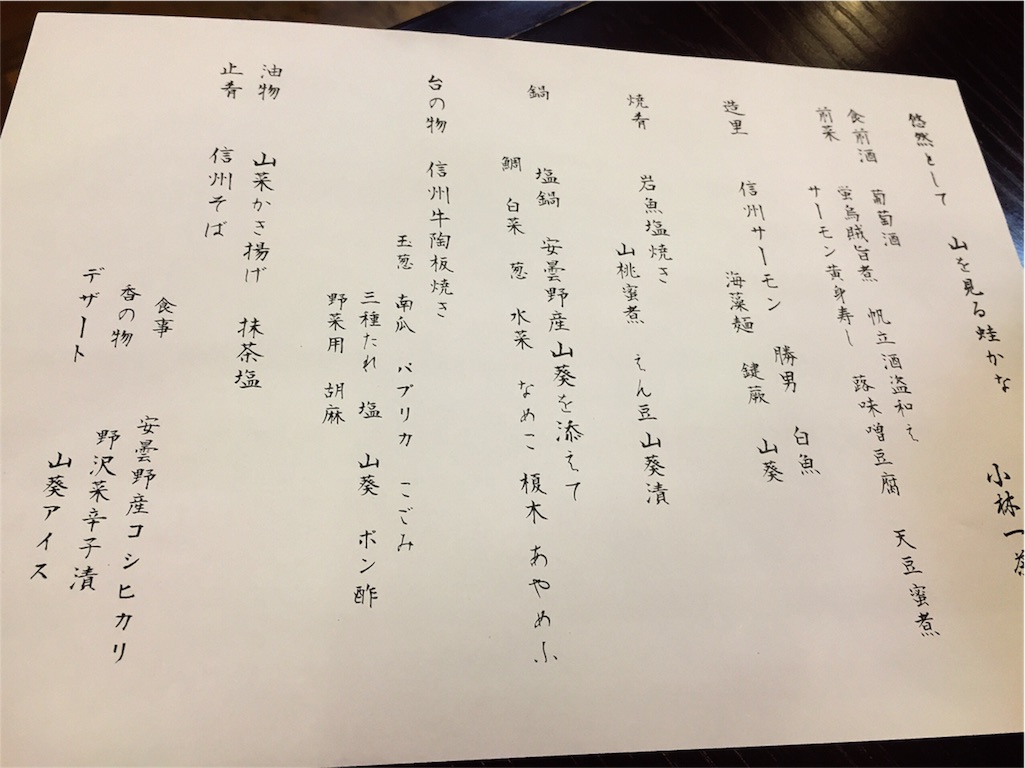 悠然として　山を見る蛙かな　小林一茶
食前酒　葡萄酒
前菜　蛍烏賊旨煮　帆立酒盗和え　天豆蜜煮
サーモン黄身寿し　蕗味噌豆腐
造里　信州サーモン　勝男　白魚
海藻麺　鍵蕨　山葵
焼肴　岩魚塩焼き
山桃蜜煮　えん豆山葵漬
鍋　塩鍋　安曇野産山葵を添えて
鯛　白菜　葱　水菜　なめこ　榎木　あやめふ
台の物　信州牛陶板焼き
玉葱　南瓜　パプリカ　こごみ
三種たれ　塩　山葵　ポン酢
野菜用　胡麻
油物　山菜かき揚げ　抹茶塩
止肴　信州そば
食事　安曇野産コシヒカリ
香の物　野沢菜辛子漬
デザート　山葵アイス